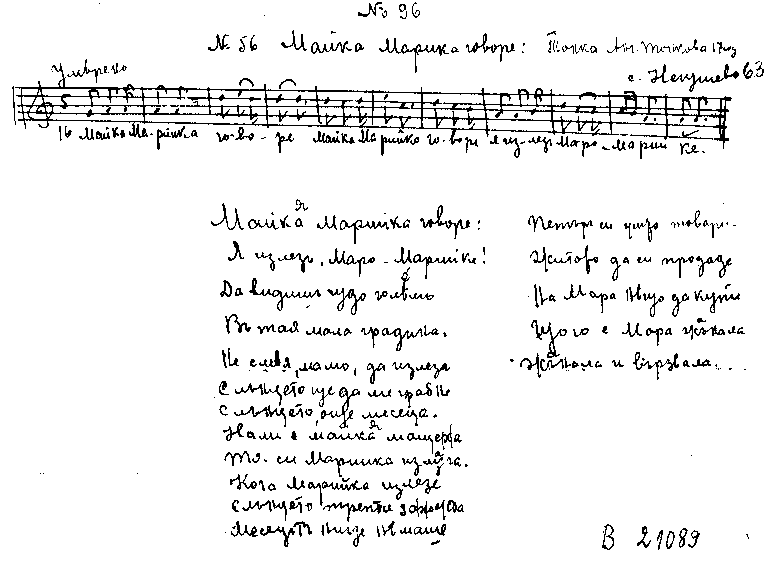 № 96
№ 56 Майка Марика говоре: Тонка Ан. 17 год
Умерено с. Негушево 63
16 Майка Ма-рийка го-во-ре Майка Марийко го-воре я из-лезъ Маро-Марий ке.
Майка я Марийка говоре:
Я излезъ, Маро - Марийке!
Да видишъ чудо големо
Въ тая мала градина.
Не смея, мамо, да излеза
Слънцето ще да ме грабне
Слънцето, още месеца.
Нали е майка я мащеха
То си Марийка излъга.
Кога Марийка излезе
Слънцето трепти
Месецътъ низе
Петър си товари
Житово да си продаде
На Мара нещо да купи
Що го е Мара жънала
Жънала и вързвала...
В 21089